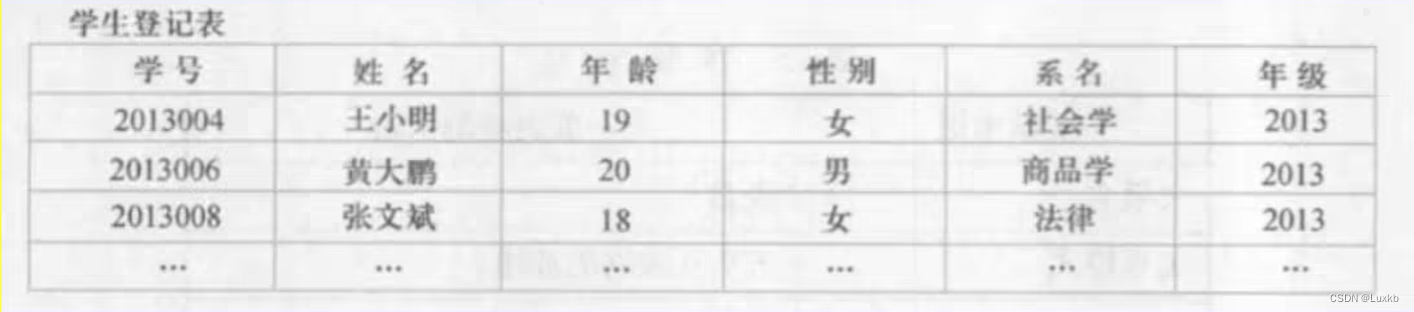 学生登记表
学号 姓名 年龄 性别 系名 年级
2013004 王小明 19 女 社会学 2013
2013006 黄大鹏 20 男 商品学 2013
2013008 张文斌 18 女 法律 2013
... ... ... ... ... ...
CSDN @Luxkb